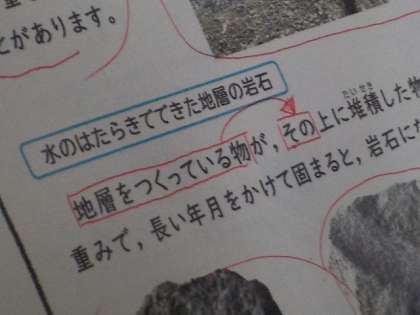 とがあります。
水のはたらきでできた地層の岩石
地層をつくっている物が，その上に堆積した物
たいせき
重みで，長い年月をかけて固まると，岩石に